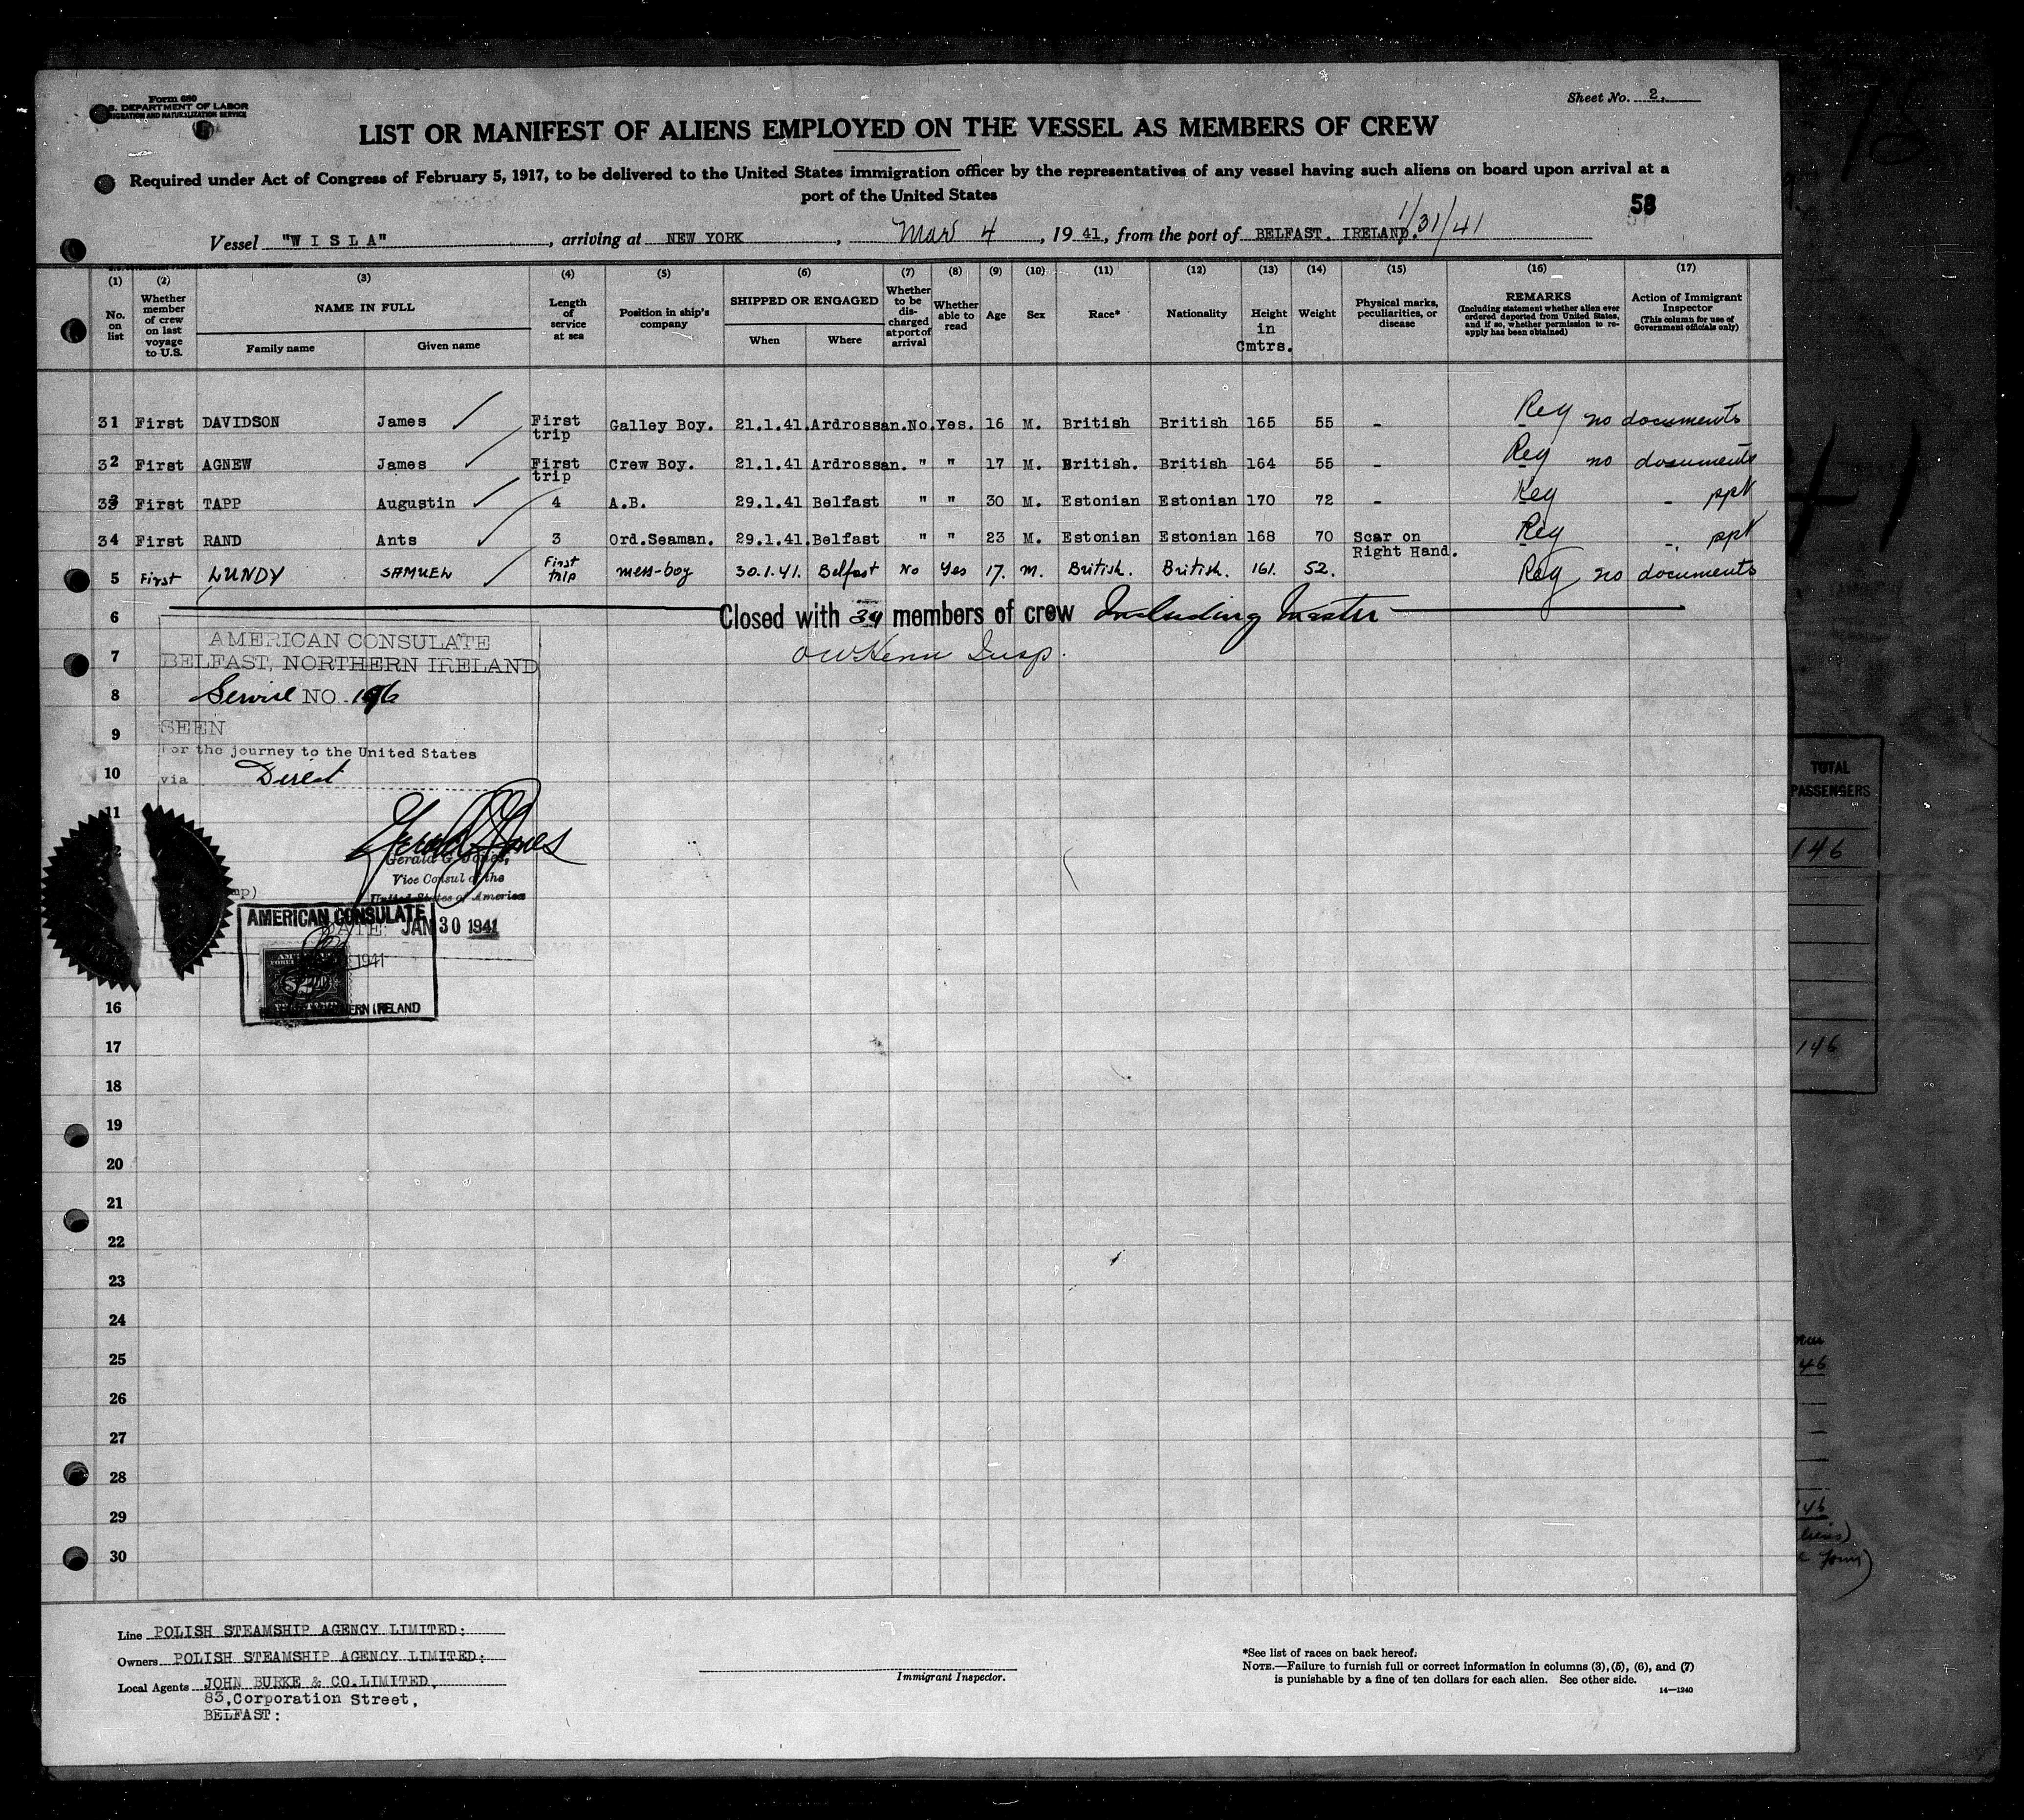 Form 680
S. DEPARTMENT OF LABOR
IGRATION AND NATURALIZATION SERVICE
Sheet No. 2.
LIST OR MANIFEST OF ALIENS EMPLOYED ON THE VESSEL AS MEMBERS OF CREW
Required under Act of Congress of February 5, 1917, to be delivered to the United States immigration officer by the representatives of any vessel having such aliens on board upon arrival at a
port of the United States
58
Vessel "WISLA", arriving at NEW YORK, Mar 4, 19 41, from the port of BELFAST. IRELAND. 1/31/41
(1) (2) (3) (4) (5) (6) (7) (8) (9) (10) (11) (12) (13) (14) (15) (16) (17)
No. on list
Whether member of crew on last voyage to U.S.
NAME IN FULL
Family name
Given name
Length of service at sea
Position in ship's company
SHIPPED OR ENGAGED
When
Where
Whether to be discharged at port of arrival
Whether able to read
Age
Sex
Race*
Nationality
Height in Cmtrs.
Weight
Physical marks, peculiarities, or disease
REMARKS
(Including statement whether alien ever ordered deported from United States, and if so, whether permission to reapply has been obtained)
Action of Immigrant Inspector
(This column for use of Government officials only)
31 First DAVIDSON James First trip Galley Boy. 21.1.41. Ardrossan. No. Yes. 16 M. British British 165 55 - Reg no documents
32 First AGNEW James First trip Crew Boy. 21.1.41 Ardrossan. " " 17 M. British. British 164 55 - Reg no documents
33 First TAPP Augustin 4 A.B. 29.1.41 Belfast " " 30 M. Estonian Estonian 170 72 - Reg - ppt
34 First RAND Ants 3 Ord.Seaman. 29.1.41. Belfast " " 23 M. Estonian Estonian 168 70 Scar on Right Hand. Reg - ppt
5 First LUNDY SAMUEL First trip mess-boy 30.1.41. Belfast No Yes 17. M. British. British. 161. 52. Reg no documents
6 Closed with 34 members of crew Including Master
7
8
9
10
11
2
16
17
18
19
20
21
22
23
24
25
26
27
28
29
30
AMERICAN CONSULATE
BELFAST, NORTHERN IRELAND
Service NO. 196
SEEN
For the journey to the United States
via Direct
Gerald G. Jones,
Vice Consul of the
United States of America
AMERICAN CONSULATE
DATE: JAN 30 1941
1941
ERN IRELAND
TOTAL
PASSENGERS
146
146
46
146
Line POLISH STEAMSHIP AGENCY LIMITED:
Owners POLISH STEAMSHIP AGENCY LIMITED:
Local Agents JOHN BURKE & CO.LIMITED,
83, Corporation Street,
BELFAST:
Immigrant Inspector.
*See list of races on back hereof.
NOTE.—Failure to furnish full or correct information in columns (3), (5), (6), and (7)
is punishable by a fine of ten dollars for each alien. See other side.
14—1240